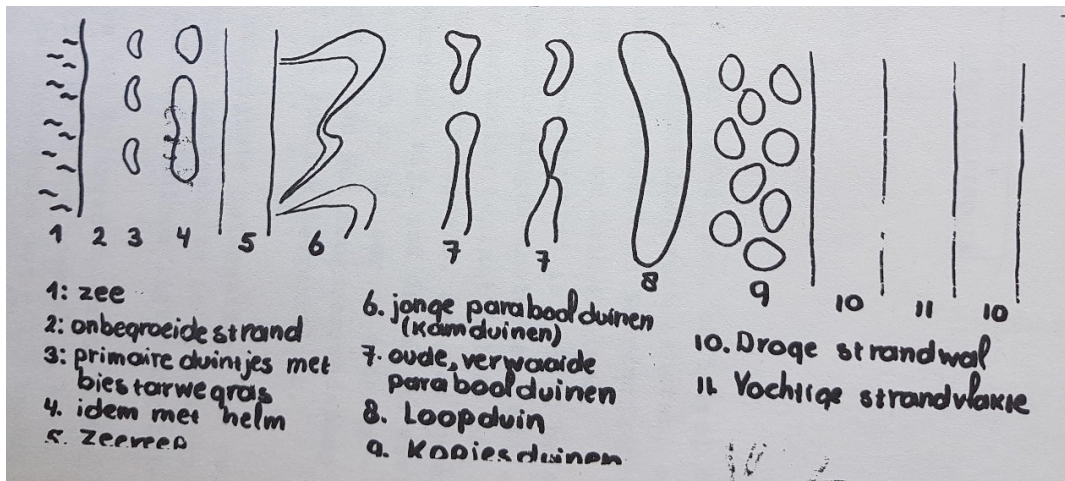 1 2 3 4 5 6 7 7 8 9 10 11 10
1: zee
2: onbegroeide strand
3: primaire duintjes met
biestarwegras
4. idem met helm
5. Zeereep
6. jonge paraboolduinen
(Kamduinen)
7. oude, verwaaide
paraboolduinen
8. Loopduin
9. Kopjesduinen
10. Droge strandwal
11 Vochtige strandvlakte